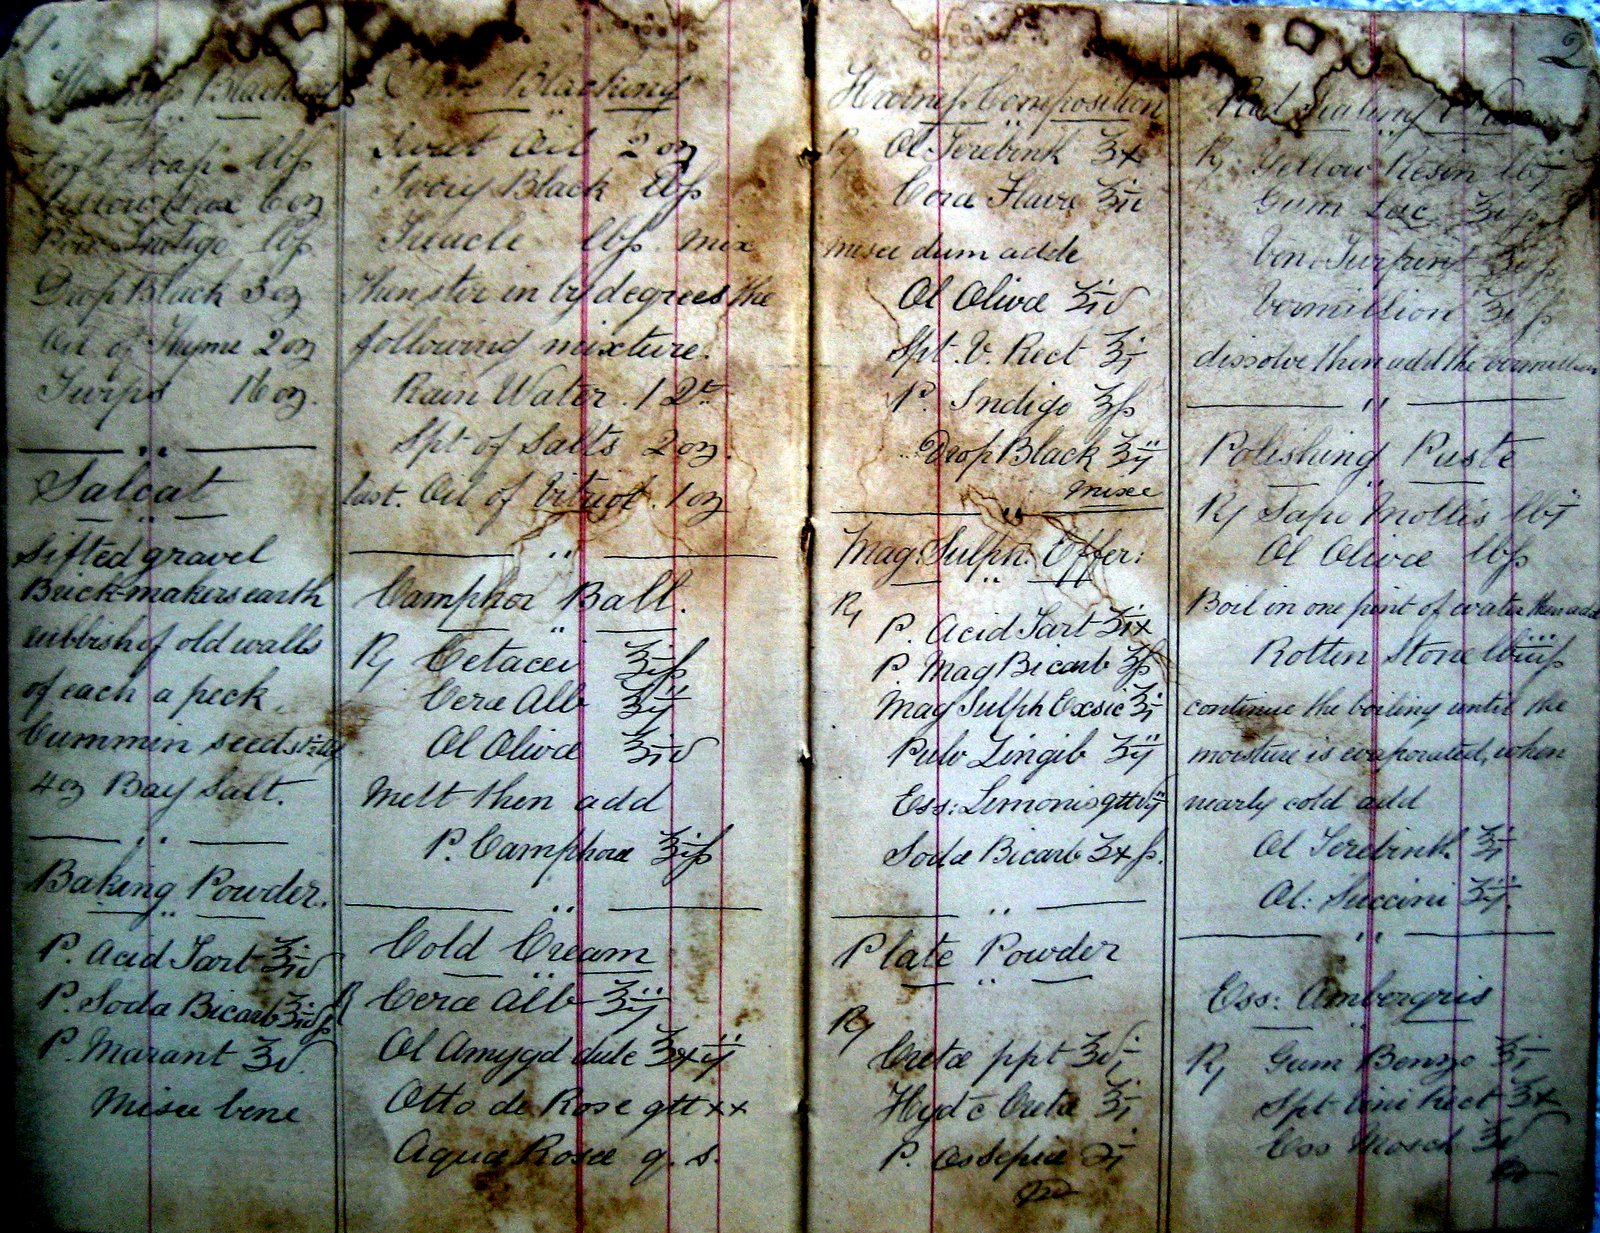 Blacking
Soft Soap lb ß
Yellow Wax 6 oz
Pow Indigo lb ß
Drop Black 3 oz
Oil of Thyme 2 oz
Turps 16 oz.
Salcat
Sifted gravel
Brick-makers earth
rubbish of old walls
of each a peck
Cummin seeds
4 oz Bay Salt.
Baking Powder.
P. Acid Tart ℥iv
P. Soda Bicarb ℥ivß
P. Marant ℥v.
Misce bene
Blacking
Sweet Oil 2 oz
Ivory Black lb ß
Treacle lb ß. mix
then stir in by degrees the
following mixture.
Rain Water. 1 Qt
Spt of Salts 2 oz.
last. Oil of Vitriol. 1 oz
Camphor Ball.
R Cetacei ℥iß
Cera Alb ℥ij
Ol Olivæ ℥iv
Melt then add
P. Camphora ℥iß
Cold Cream
R Cera Alb ℥ij
Ol Amygd dulc ℥xij
Otto de Rose gtt xx
Aqua Rosæ q. s.
2
Harness Composition
R Ol Terebinth ℥x
Cera Flava ℥iij
misce dum adde
Ol Olivæ ℥iv
Spt. V. Rect ℥i
P. Indigo ℥ß
Drop Black ℥ij
misce
Mag: Sulph: Effer:
R P. Acid Tart ℥ix
P. Mag Bicarb ℥ß
Mag Sulph Exsic ℥i
Pulv Zingib ℥ij
Ess: Lemonis gtt
Soda Bicarb ℥xß.
Plate Powder
R
Creta ppt ℥vi
Hyd c̄ Creta ℥i
P. Os Sepiæ ℥i
Red Sealing
R Yellow Resin lb j
Gum Lac
Ven: Turpint
Vermillion
dissolve then add the vermillion
Polishing Paste
R Sapo Mollis lb j
Ol Olivæ lb ß
Boil in one pint of water then add
Rotten Stone lb iiiß
continue the boiling until the
moisture is evaporated, when
nearly cold add
Ol Terebinth. ℥i
Ol: Succini ℥ij.
Ess: Ambergris
R Gum Benzo ℥i
Spt Vini Rect ℥x
Ess Mosch ℥v